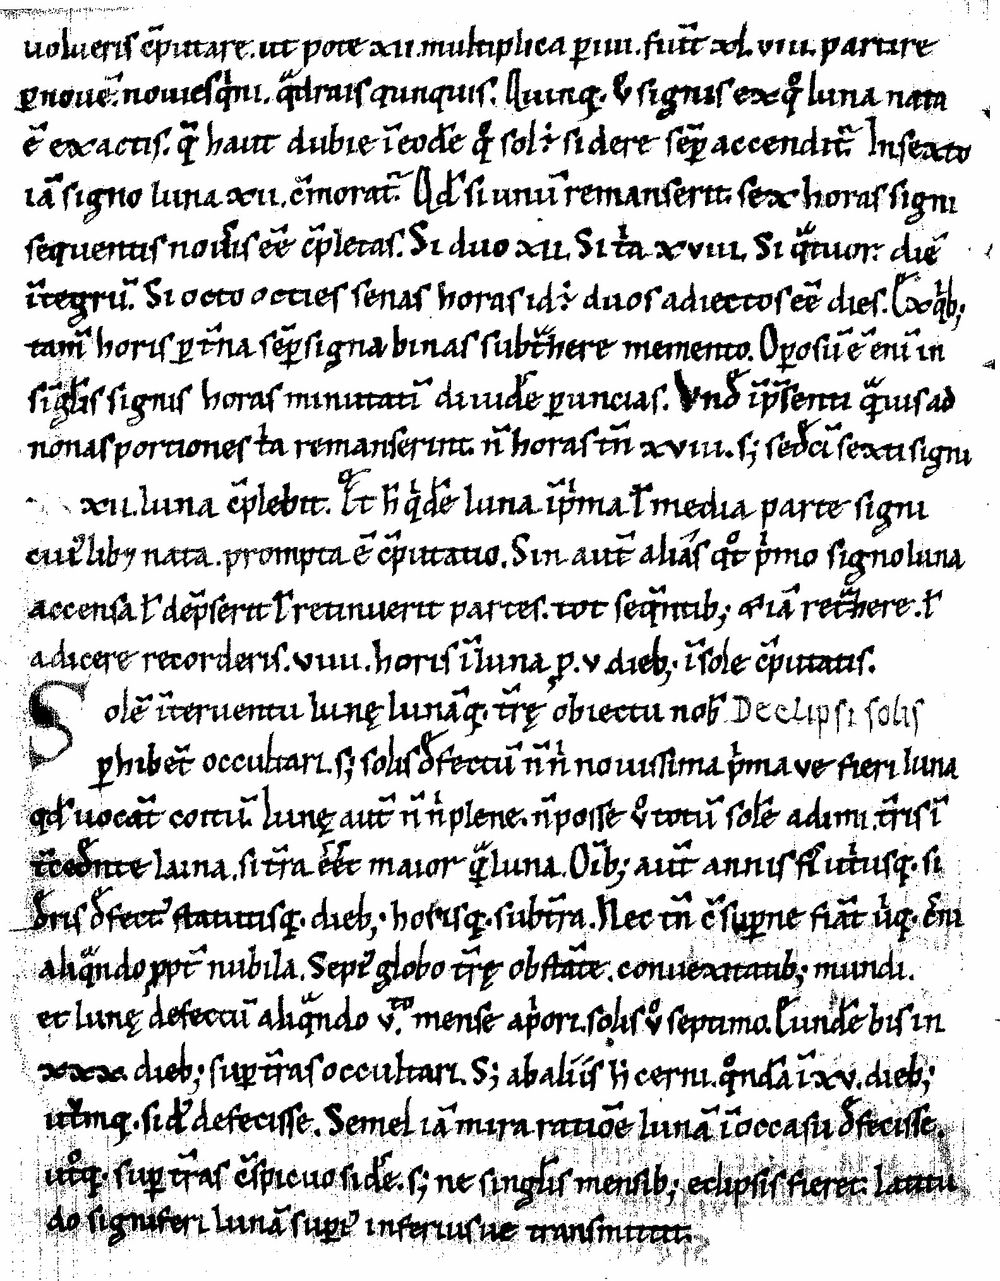 uolueris c̄putare. ut pote xii. multiplica ꝑ iiii. fiūt xl.viii. partire
ꝑ nouē. nouies qͥni. qͣdraīs qinquis. Quinq; v̊ signis ex qͦ luna nata
ē exactis. qͣ haut dubie ī eodē qͦ sol ÷ sidere sēꝑ accendit̄. In sexto
iā signo luna xii. c̄morat̄. Qd̄ si unū remanserit. sex horas signi
sequentis nou̓is eē c̄pletas. Si duo xii. Si tͥa xviii. Si qͣtuor. diē
ītegrū. Si octo octies senas horas id ÷ duos adiectos eē dies. Ex qͥb;
tam̄ horis ꝑ t̄na sēꝑ signa binas subtͣhere memento. Oꝑosū ē enī in
siglīs signis horas minutatī diuidē ꝑ uncias. Vnd̄ īp̄senti qͣuis ad
nonas portiones tͥa remanserint. n̄ horas tn̄ xviii. s; sed̄ci sexti signi
xii. luna c̄plebit. Et h̄ qͥdē luna īpͥma ł media parte signi
cui̓ liby nata. prompta ē c̄putatio. Sin aut̄ aliás qͦt pͥmo signo luna
accensa ł dep̄serit ł retinuerit partes. tot seqn̄tib; ⁊ iā retͣhere. ł
adicere recorderis. viiii. horis ī luna. ꝑ .v. dieb; ī sole c̄putatis.
Solē īteruentu lunę lunāq; t̄rę obiectu nob̄ De eclipsi solis
ꝑhibēt occultari. s; solis d̄fectū n̄ n̄ nouissima pͥmaue fieri luna
qd̄ uocāt coitū. lunę aut̄ n̄ n̄ plene. n̄ posse v̊ totū solē adimi t̄ris ī
t̄ced̄nte luna. si t̄ra eēt maior qͣ luna. Oīb; aut̄ annis fi̓ utͥusq; si
d̄ris d̄fect̓ statutisq; dieb; horisq; subt̄ra. Nec tn̄ c̄ suꝑne fiāt uͥq; c̄ni
aliqͣndo ꝓpt̄ nubila. Sepi̓ globo t̄rę obstāte. conuexitatib; mundi.
et lunę defectū aliqͣndo v.ͭͦ mense apͥori. solis v̊ septimo. Eundē bis in
xxx. dieb; suꝑ t̄ras occultari. S; ab aliís h̄ cerni. qͦndā ī xv. dieb;
utͥmq; sid̓ defecisse. Semel iā mira ratiōe lunā ī occasu d̄fecisse.
utͦq; suꝑ t̄ras c̄spicuo sidē. s; ne singlīs mensib; eclipsis fieret. latitu
do signiferi lunā suꝑi̓ inferiusue transmittit.